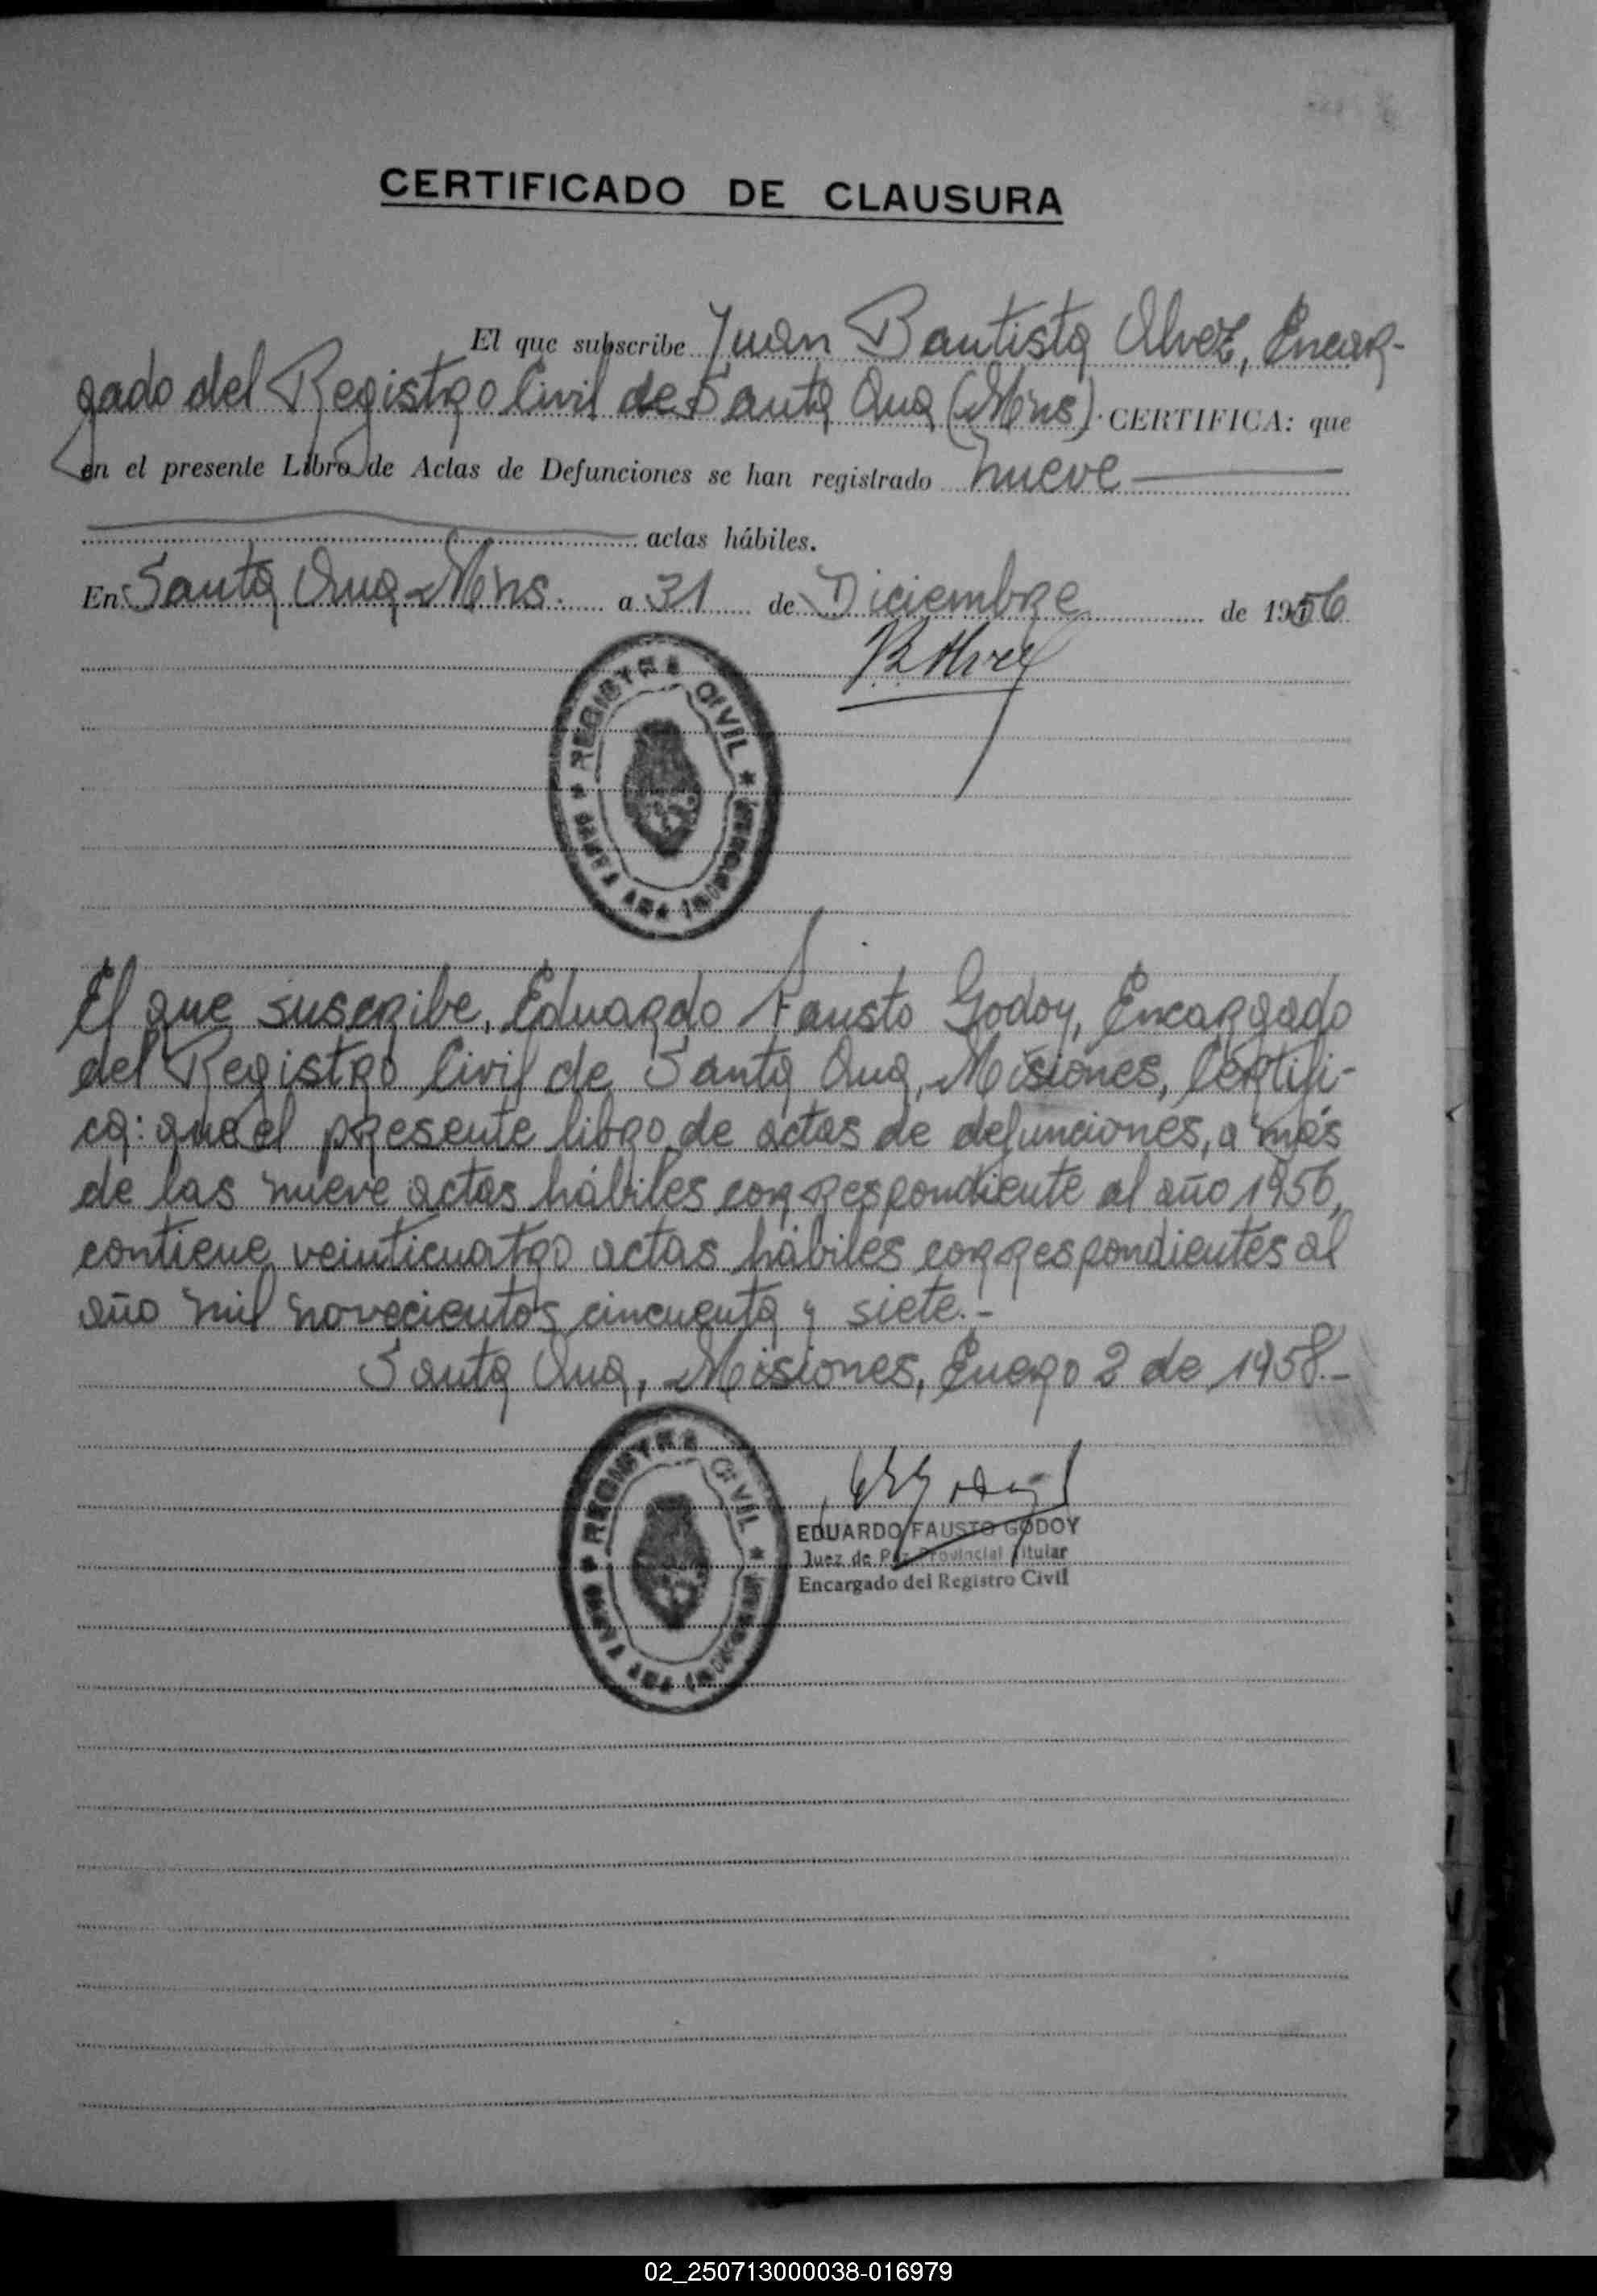 CERTIFICADO DE CLAUSURA
El que subscribe Juan Bautista Alvez, Encar-
gado del Registro Civil de Santa Ana (Mnes). CERTIFICA: que
en el presente Libro de Actas de Defunciones se han registrado nueve
actas hábiles.
En Santa Ana - Mnes. a 31 de Diciembre de 1956
REGISTRO CIVIL
SANTA ANA (MISIONES)
El que suscribe, Eduardo Fausto Godoy, Encargado
del Registro Civil de Santa Ana, Misiones, Certifi-
ca: que el presente libro de actas de defunciones, a más
de las nueve actas hábiles correspondiente al año 1956,
contiene veinticuatro actas hábiles correspondientes al
año mil novecientos cincuenta y siete.-
Santa Ana, Misiones, Enero 2 de 1958.-
REGISTRO CIVIL
SANTA ANA (MISIONES)
EDUARDO FAUSTO GODOY
Juez de Paz Provincial Titular
Encargado del Registro Civil
02_250713000038-016979